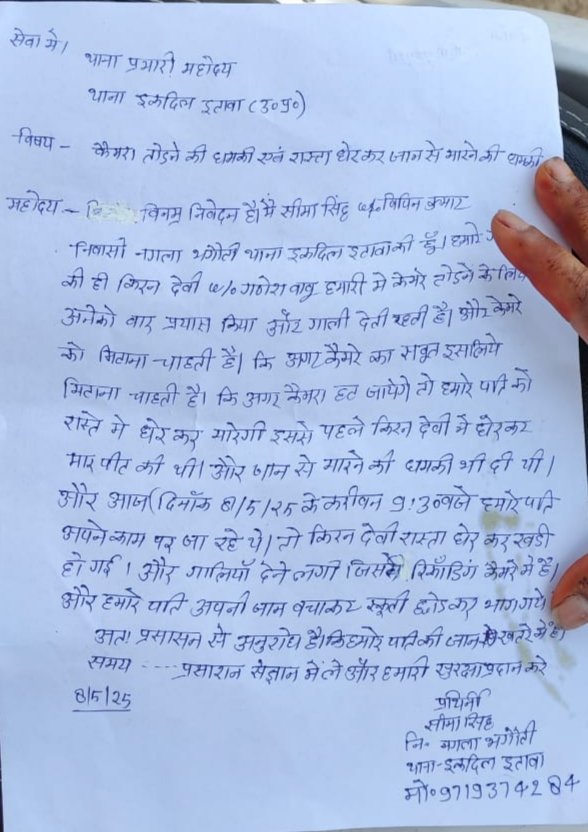 सेवा में।
थाना प्रभारी महोदय
थाना इकदिल इटावा (उ०प्र०)
विषय - कैमरा तोडने की धमकी एवं रास्ता घेर कर जान से मारने की धमकी
महोदय - विनम्र निवेदन है। मै सीमा सिंह w/o विपिन कुमार
निवासी नगला भगौती थाना इकदिल इटावा की हूँ। हमारे
की ही किरन देवी w/o गनेश बाबू हमारी मे केमरे तोडने के लिये
अनेको बार प्रयास किया और गाली देती रहती है। और केमरे
को मिटाना चाहती है। कि अगर कैमरे का सबूत इसलिये
मिटाना चाहती है। कि अगर कैमरा हट जायेगे तो हमारे पति को
रास्ते मे घेर कर मारेगी इससे पहले किरन देवी ने घेरकर
मार पीट की थी। और जान से मारने की धमकी भी दी थी।
और आज (दिनाँक 8/5/25 के करीवन 9:30 बजे हमारे पति
अपने काम पर जा रहे थे। तो किरन देवी रास्ता घेर कर खडी
हो गई। और गालियाँ देने लगी जिसमे रिकॉडिंग कैमरे मे है।
और हमारे पति अपनी जान बचाकर स्कूती छोडकर भाग गये।
अतः प्रसासन से अनुरोध है। कि हमारे पति की जान खतरे मे है।
समय ---- प्रसाशन संज्ञान में ले और हमारी सुरक्षा प्रदान करे
8/5/25
प्रार्थिनी
सीमा सिंह
नि॰ नगला भगौती
थाना - इकदिल इटावा
मो॰ 9719374284